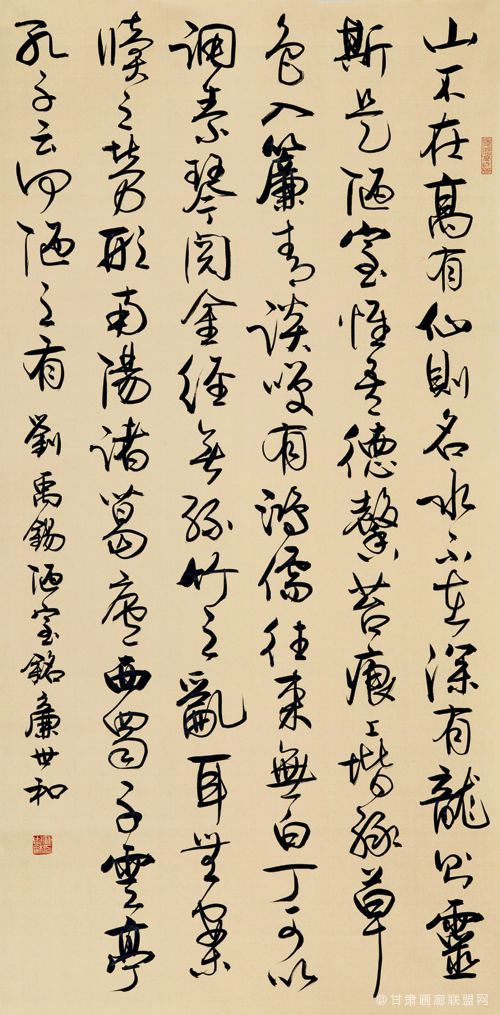 山不在高有仙則名水不在深有龍則靈
斯是陋室惟吾德馨苔痕上堦緑草
色入簾青談笑有鴻儒往來無白丁可以
調素琴閱金經無絲竹之亂耳無案
牘之勞形南陽諸葛廬西蜀子雲亭
孔子云何陋之有 劉禹錫陋室銘廉世和
@甘肃画廊联盟网